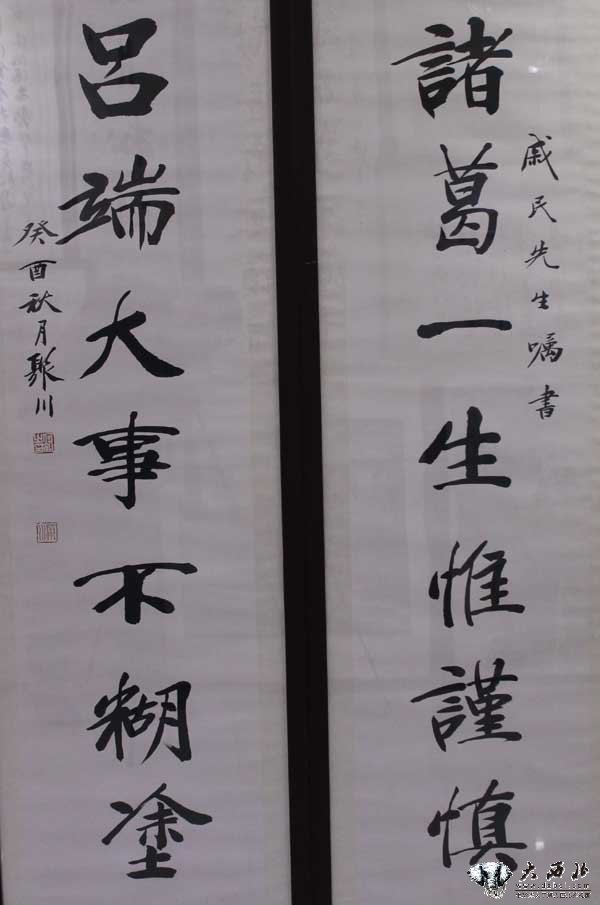 戚民先生嘱書
諸葛一生惟謹慎
吕端大事不糊塗
癸酉秋月聚川
大西北